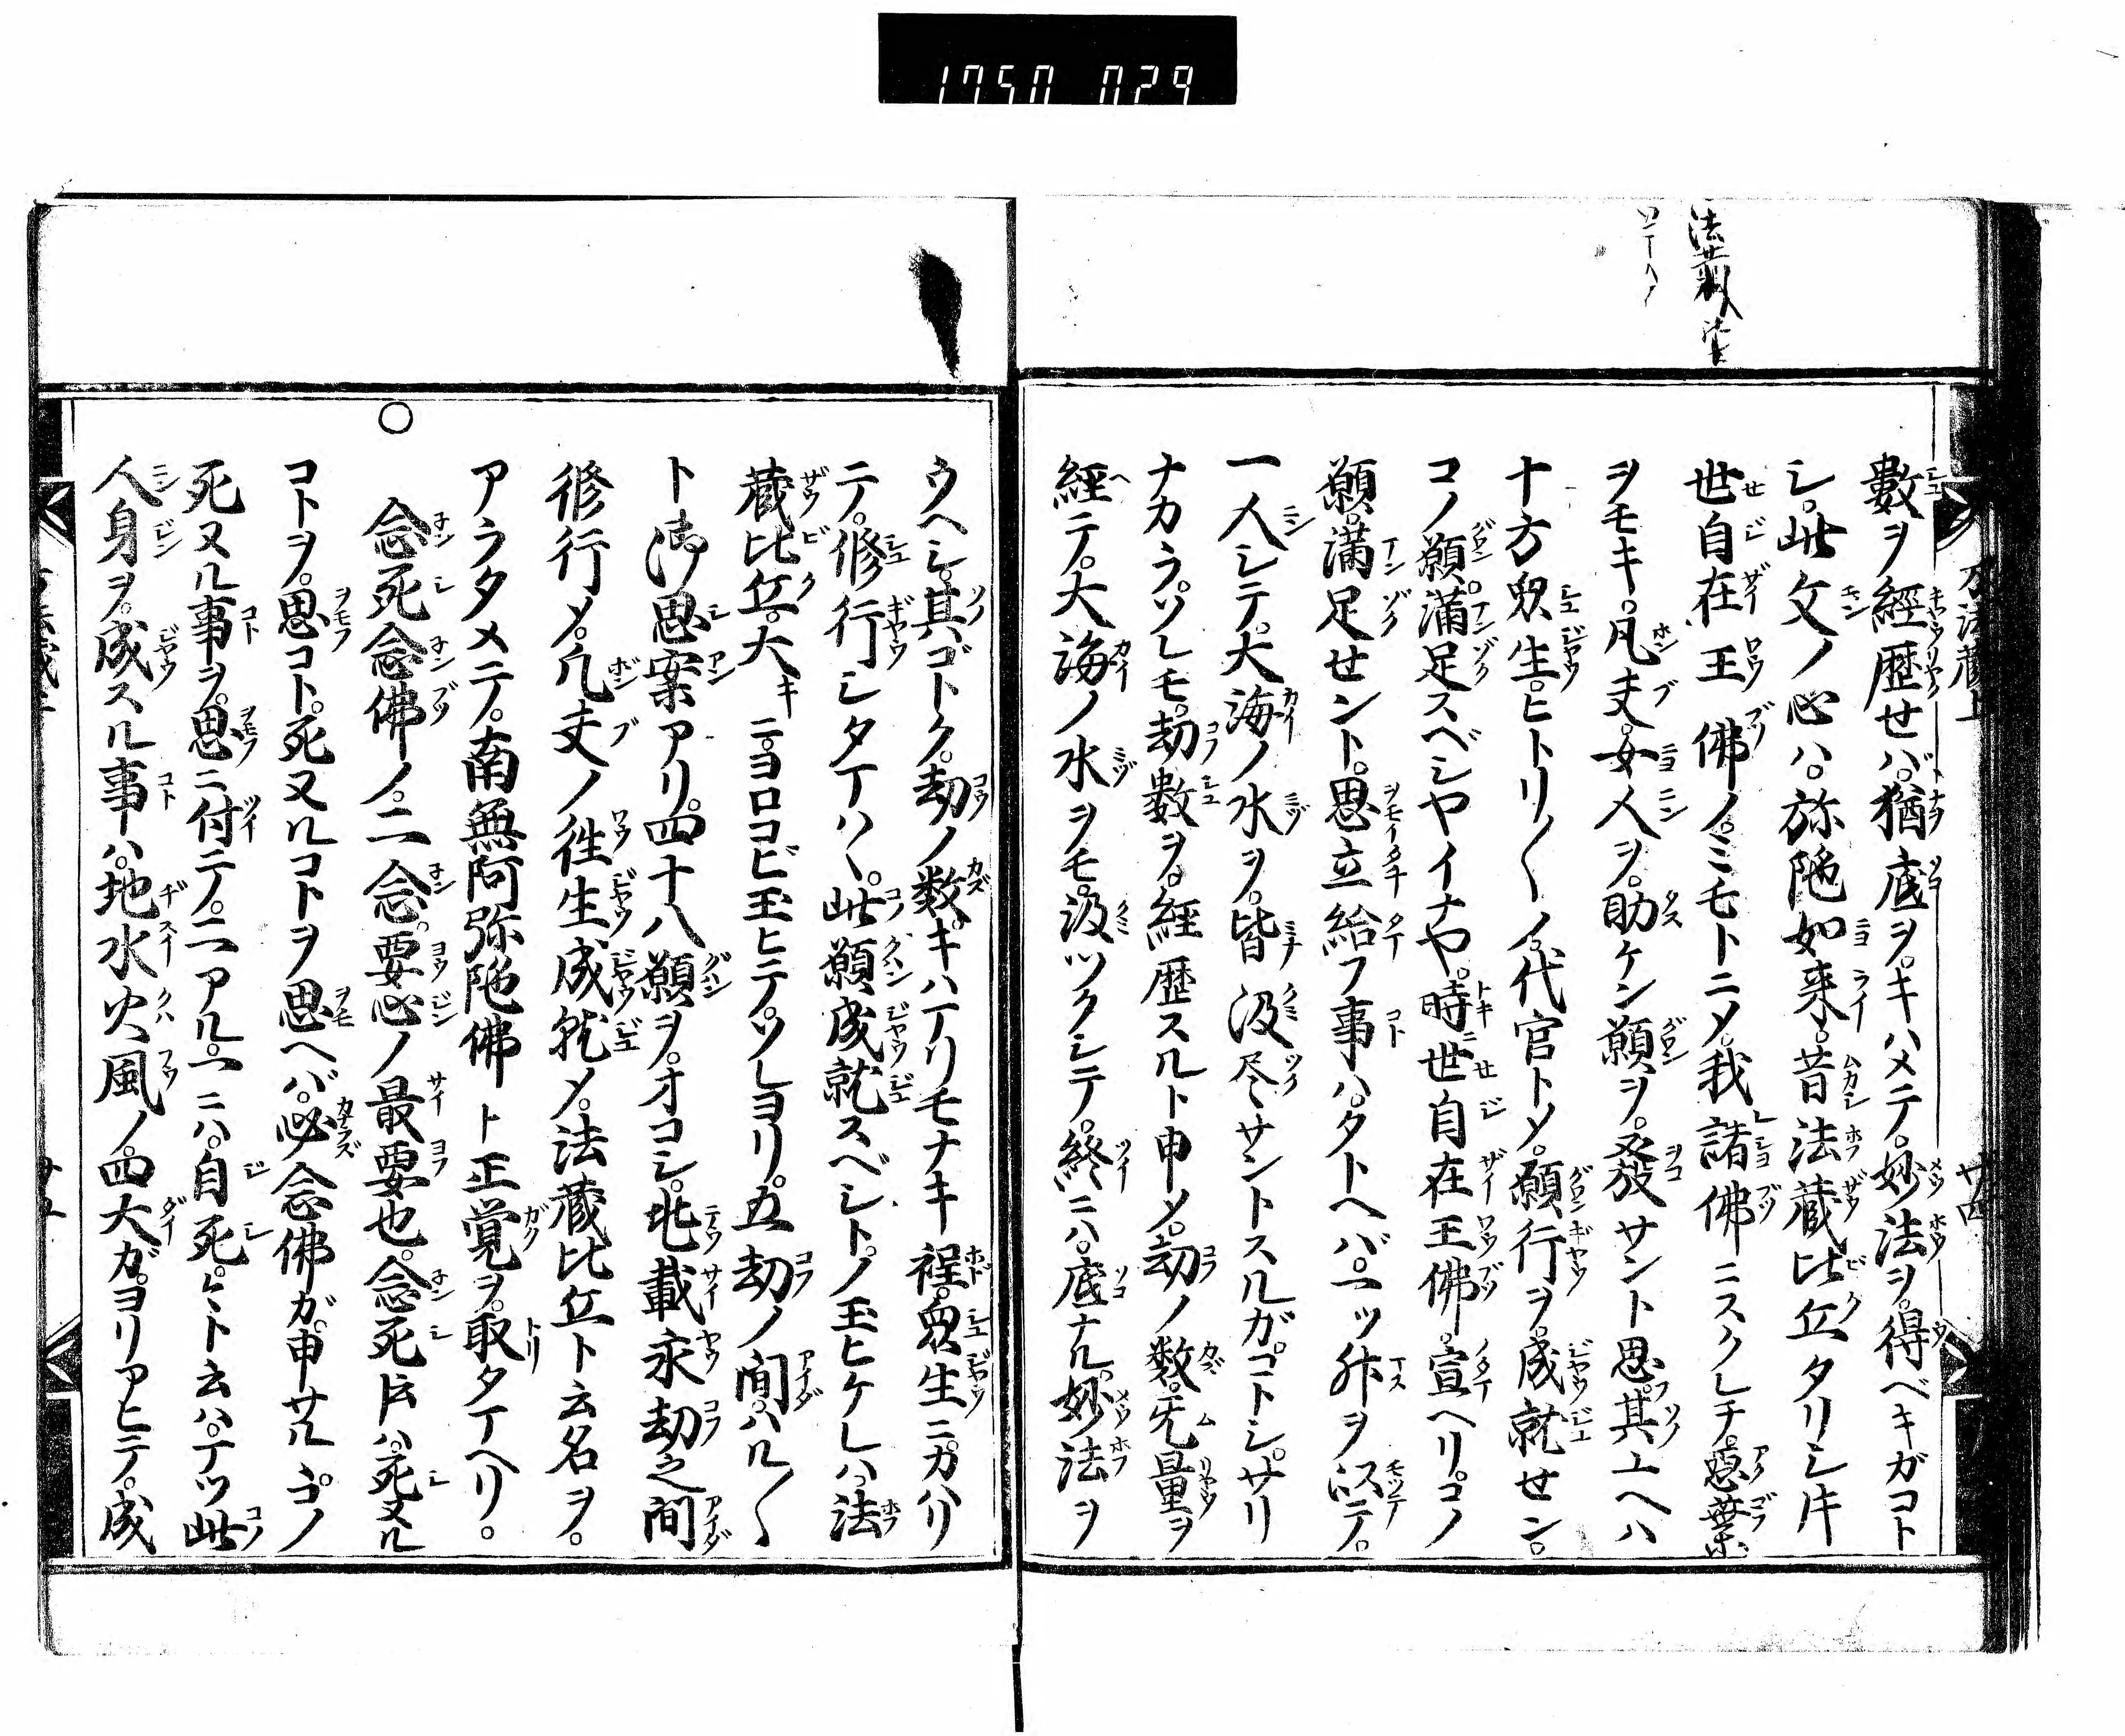 1750 029
万法蔵上
廿四
數ヲ經歴せバ。猶底ヲ。キハメテ。妙法ヲ。得ベキガコト
シ。此文ノ心ハ。弥陁如来。昔法蔵比丘タリシ𪜈
世自在王佛ノ。ミモトニメ。我諸佛ニスクレテ。惡業
ヲモキ。凡夫。女人ヲ。助ケン願ヲ。發サント思。其上ヘハ
十方衆生。ヒトリ〱ノ。代官トメ。願行ヲ。成就せン。
コノ願。満足スベシヤイナヤ。時世自在王佛。宣ヘリ。コノ
願。満足せント。思立給フ事ハ。タトヘバ。一ツ舛ヲ以テ。
一人シテ。大海ノ水ヲ。皆汲尽サントスルガ。コトシ。サリ
ナカラ。ソレモ。劫數ヲ。経歴スルト申メ。劫ノ数。无量ヲ
経テ。大海ノ水ヲモ。汲ツクシテ。終ニハ。底ナル。妙法ヲ
ウヘシ。其ゴトク。劫ノ数。キハ丁リモナキ程。衆生ニ。カハリ
テ。修行シタ丁ハヽ。此願成就スベシト。ノ玉ヒケレハ。法
蔵比丘。大キニ。ヨロコビ玉ヒテ。ソレヨリ。五劫ノ間。ハル〱
ト御思案アリ。四十八願ヲ。オコシ。兆載永劫之間
修行メ。凡夫ノ徃生成就メ。法蔵比丘ト云名ヲ。
アラタメテ。南無阿弥陁佛ト正覚ヲ。取タ丁ヘリ。
○念死念佛ノ。二念。要心ノ最要也。念死𪜈ハ。死又ル
コトヲ。思コト。死又ルコトヲ思ヘバ。必念佛ガ。申サル。コノ
死又ル事ヲ。思ニ付テ。二アル。一ニハ。自死。ト云ハ。丁ツ此
人身ヲ。成スル事ハ。地水火風ノ。四大ガ。ヨリアヒテ。成